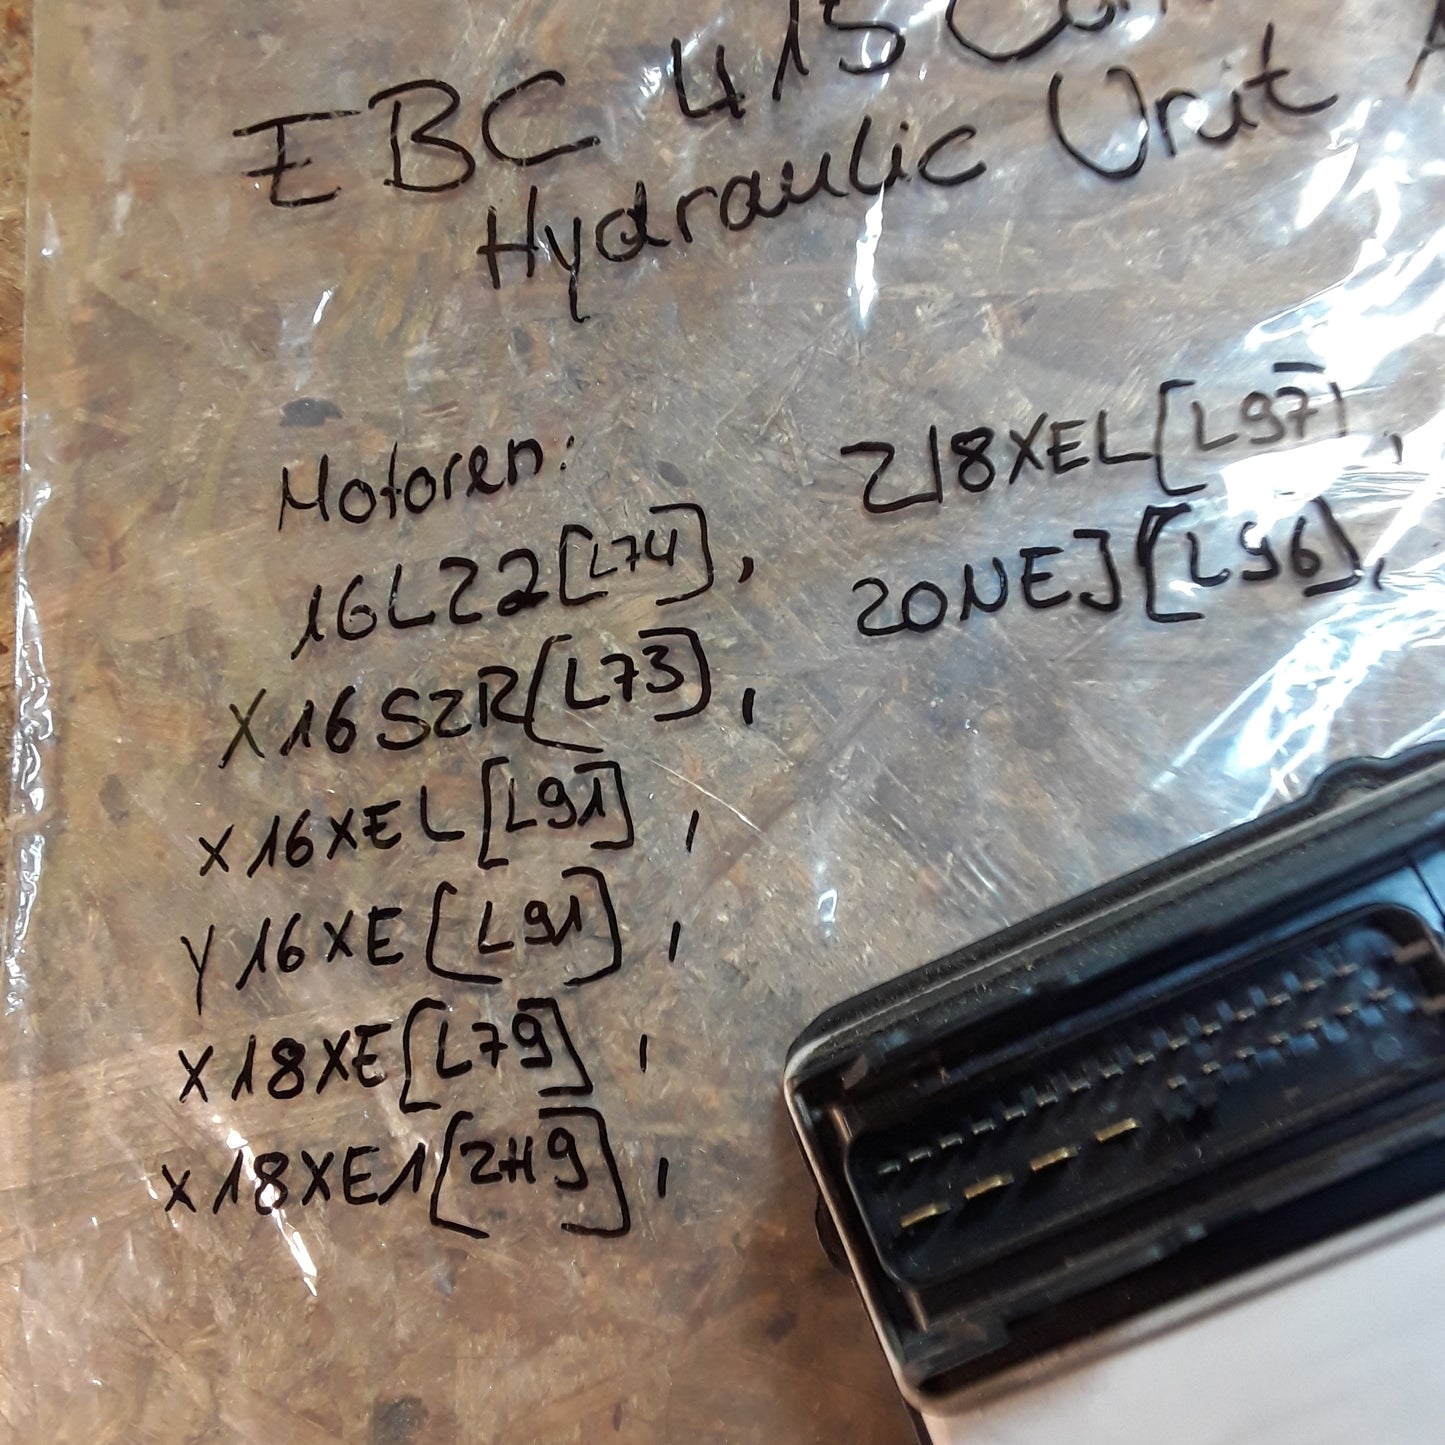 EBC 415
Hydraulic Unit
Motoren:
16LZ2[L74],
X16SZR[L73],
X16XEL[L91],
Y16XE[L91],
X18XE[L79],
X18XE1[2H9],
Z18XEL[L97],
20NEJ[L96],